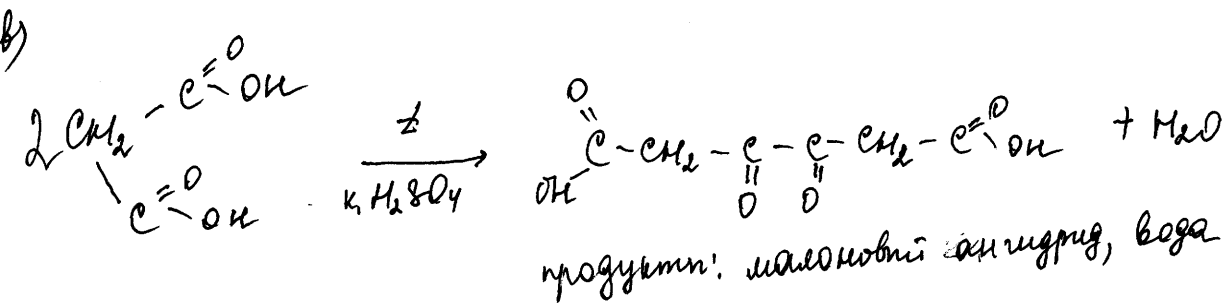 в)
2 CH₂ - C =O - OH - C =O - OH t к. H₂SO₄ O = C - OH - CH₂ - C = O - C = O - CH₂ - C =O - OH + H₂O
продукты: малоновый ангидрид, вода